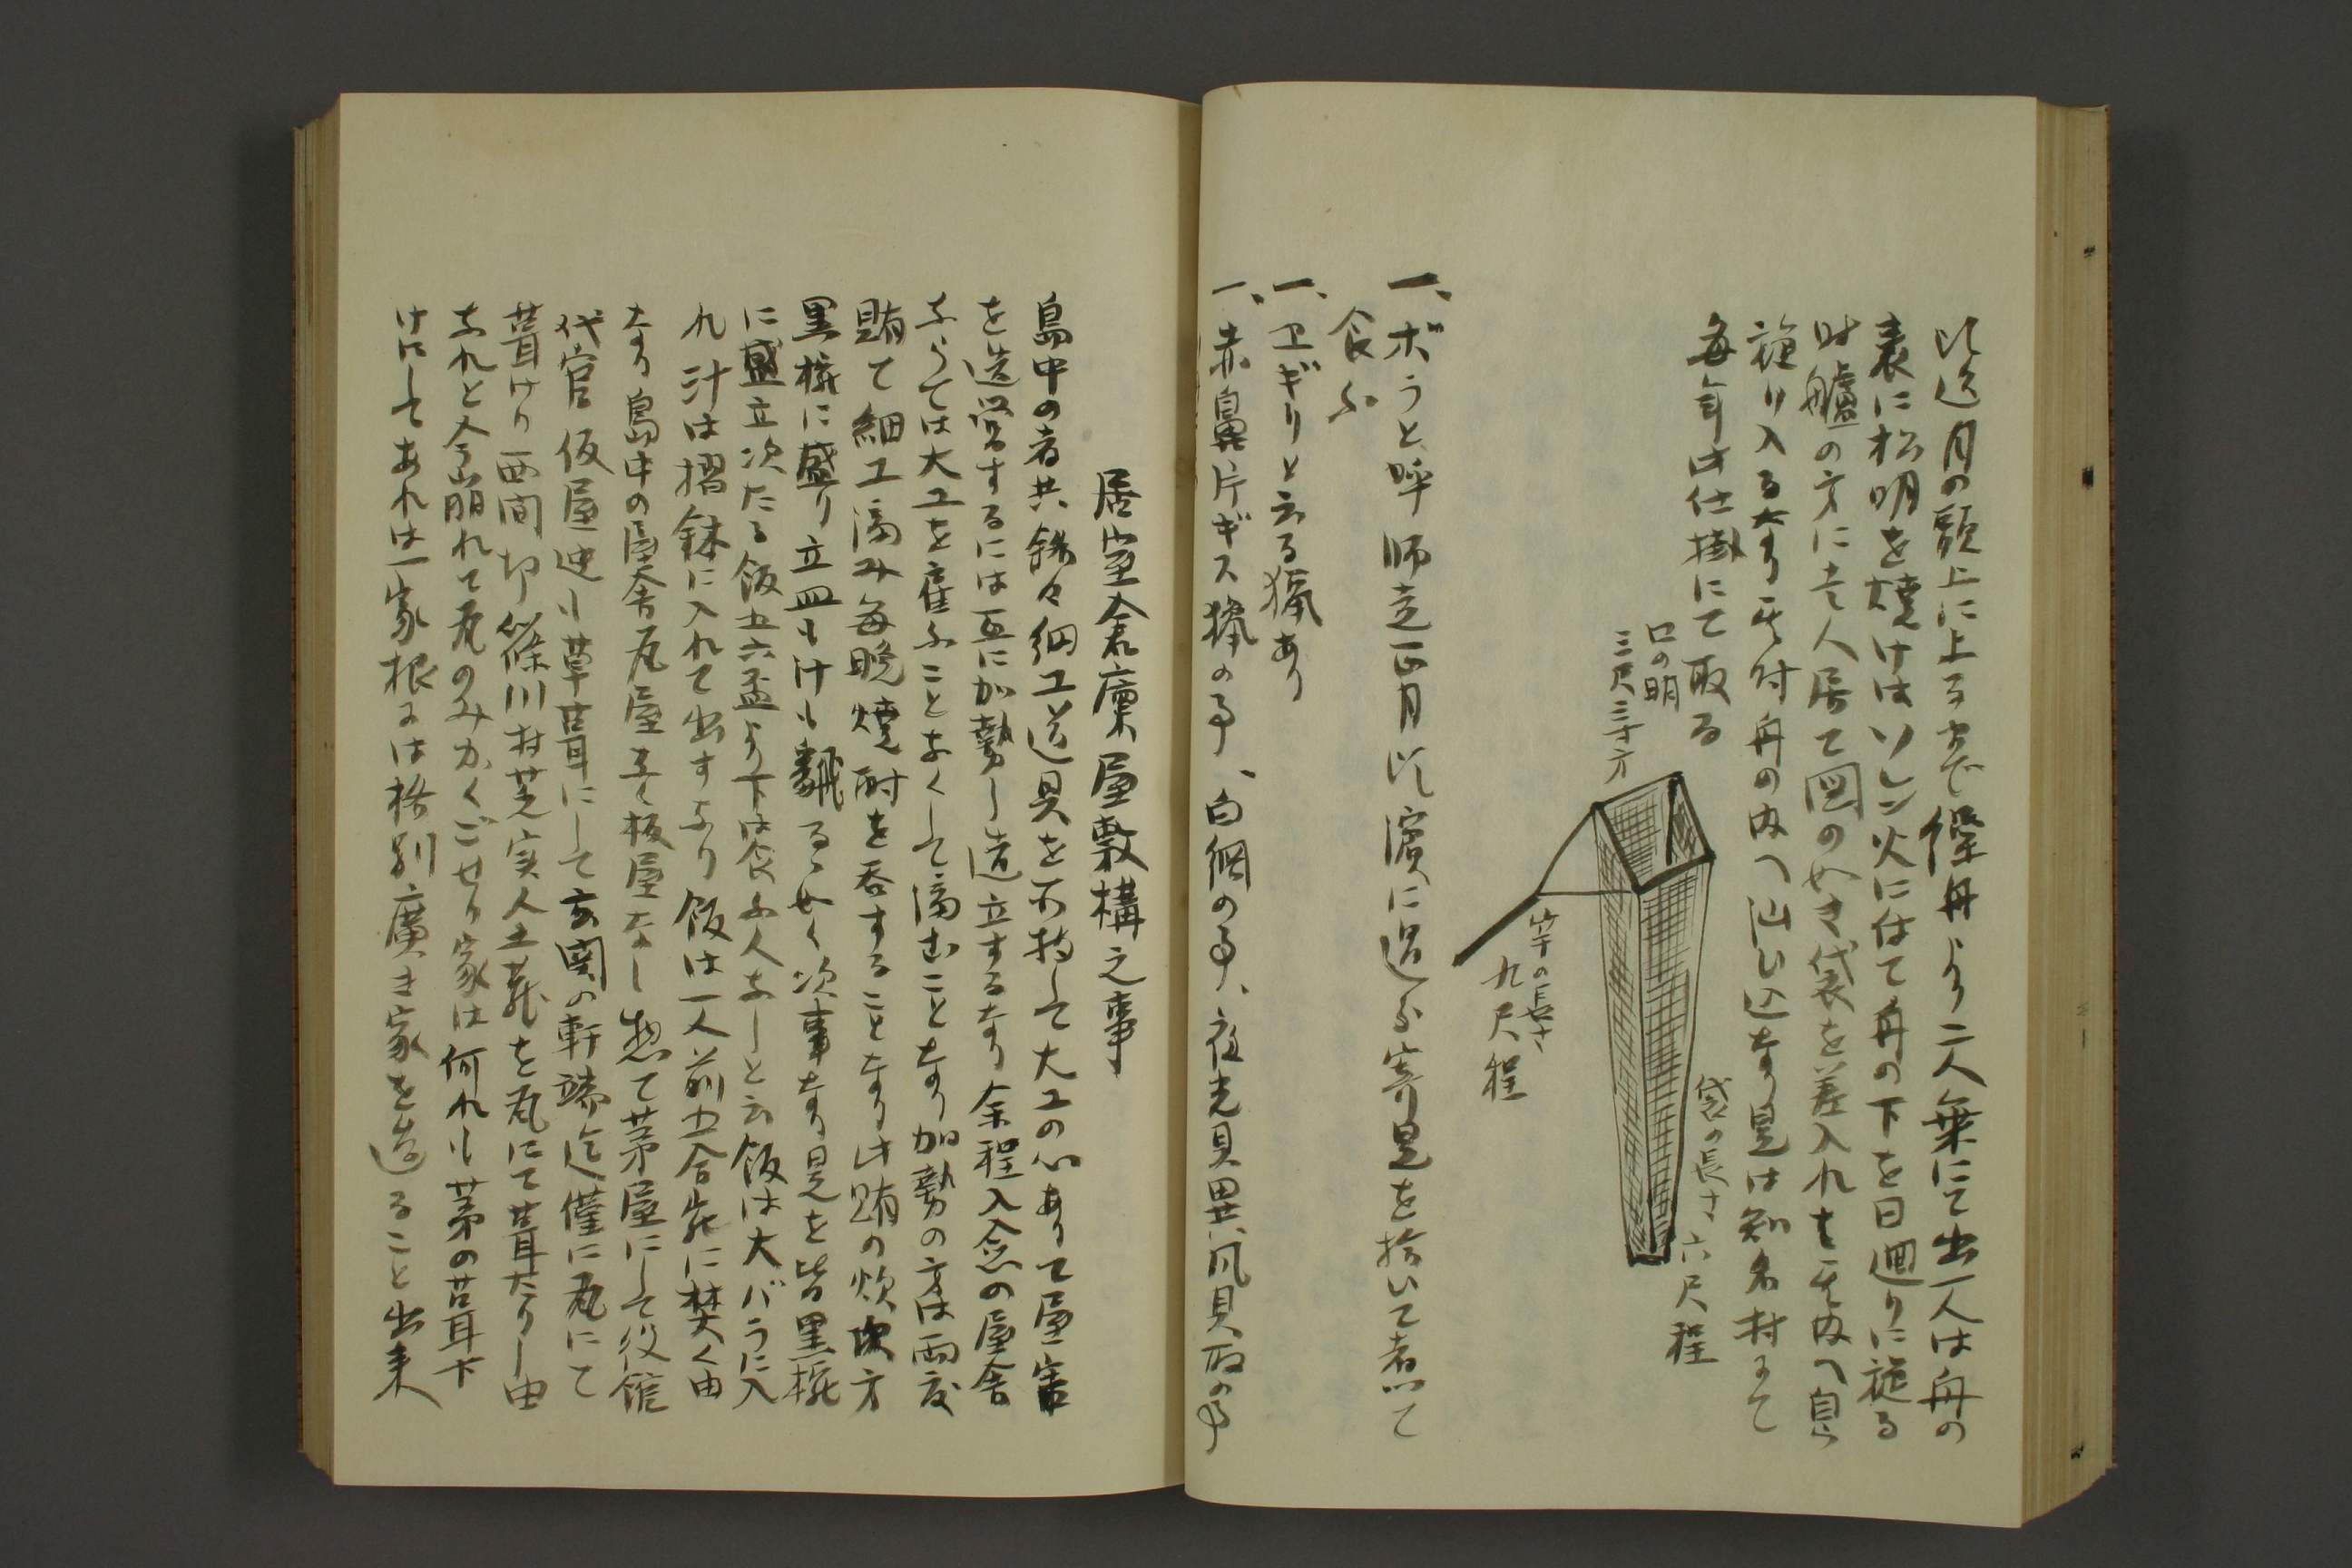 比迄月の頭上に上るまで傑舟より二人乗にて出一人は舟の
表に松明を焼けはソレン火に付て舟の下を日廻りに旋る
時艫の方に壱人居て図の如き袋を差入れは其内へ自ら
旋り入るなり其時舟の内へ汕ひ込なり是は知名村にて
毎年此仕掛にて取る
口の明
三尺三寸方
竿の長さ
九尺程
袋の長さ六尺程
一、ボうと呼師走正月比濱に追ふ寄是を拾いて煮いて
食ふ
一、ヱギリと云る猟あり
一、赤鼻片ギス猟の事、白網の事、夜光貝異風貝取の事
居室倉廩屋敷構之事
島中の者共銘々細工道具を所持して大工の心ありて屋宅
を造営するには互に加勢し造立するなり余程入念の屋舎
ならては大工を雇ふことなくして済むことなり加勢の方は両度
賄て細工済み毎晩焼酎を呑することなり此賄の炊次方
黒椀に盛り立皿もけも飜るゝ如く次事なり是を皆黒椀
に盛立次たる飯五六盃より下は食ふ人なしと云飯は大バうに入
れ汁は摺鉢に入れて出すなり飯は一人前五合宛に焚く由
なり島中の屋舎瓦屋并板屋なし惣て茅屋にして役館
代官仮屋迚も草葺にして玄関の軒端迄僅に瓦にて
葺けり西間切篠川村芝実人土蔵を瓦にて葺たりし由
なれと今崩れて瓦のみかくごせり家は何れも茅の葺下
けにしてあれは一家根には格別廣き家を造ること出来